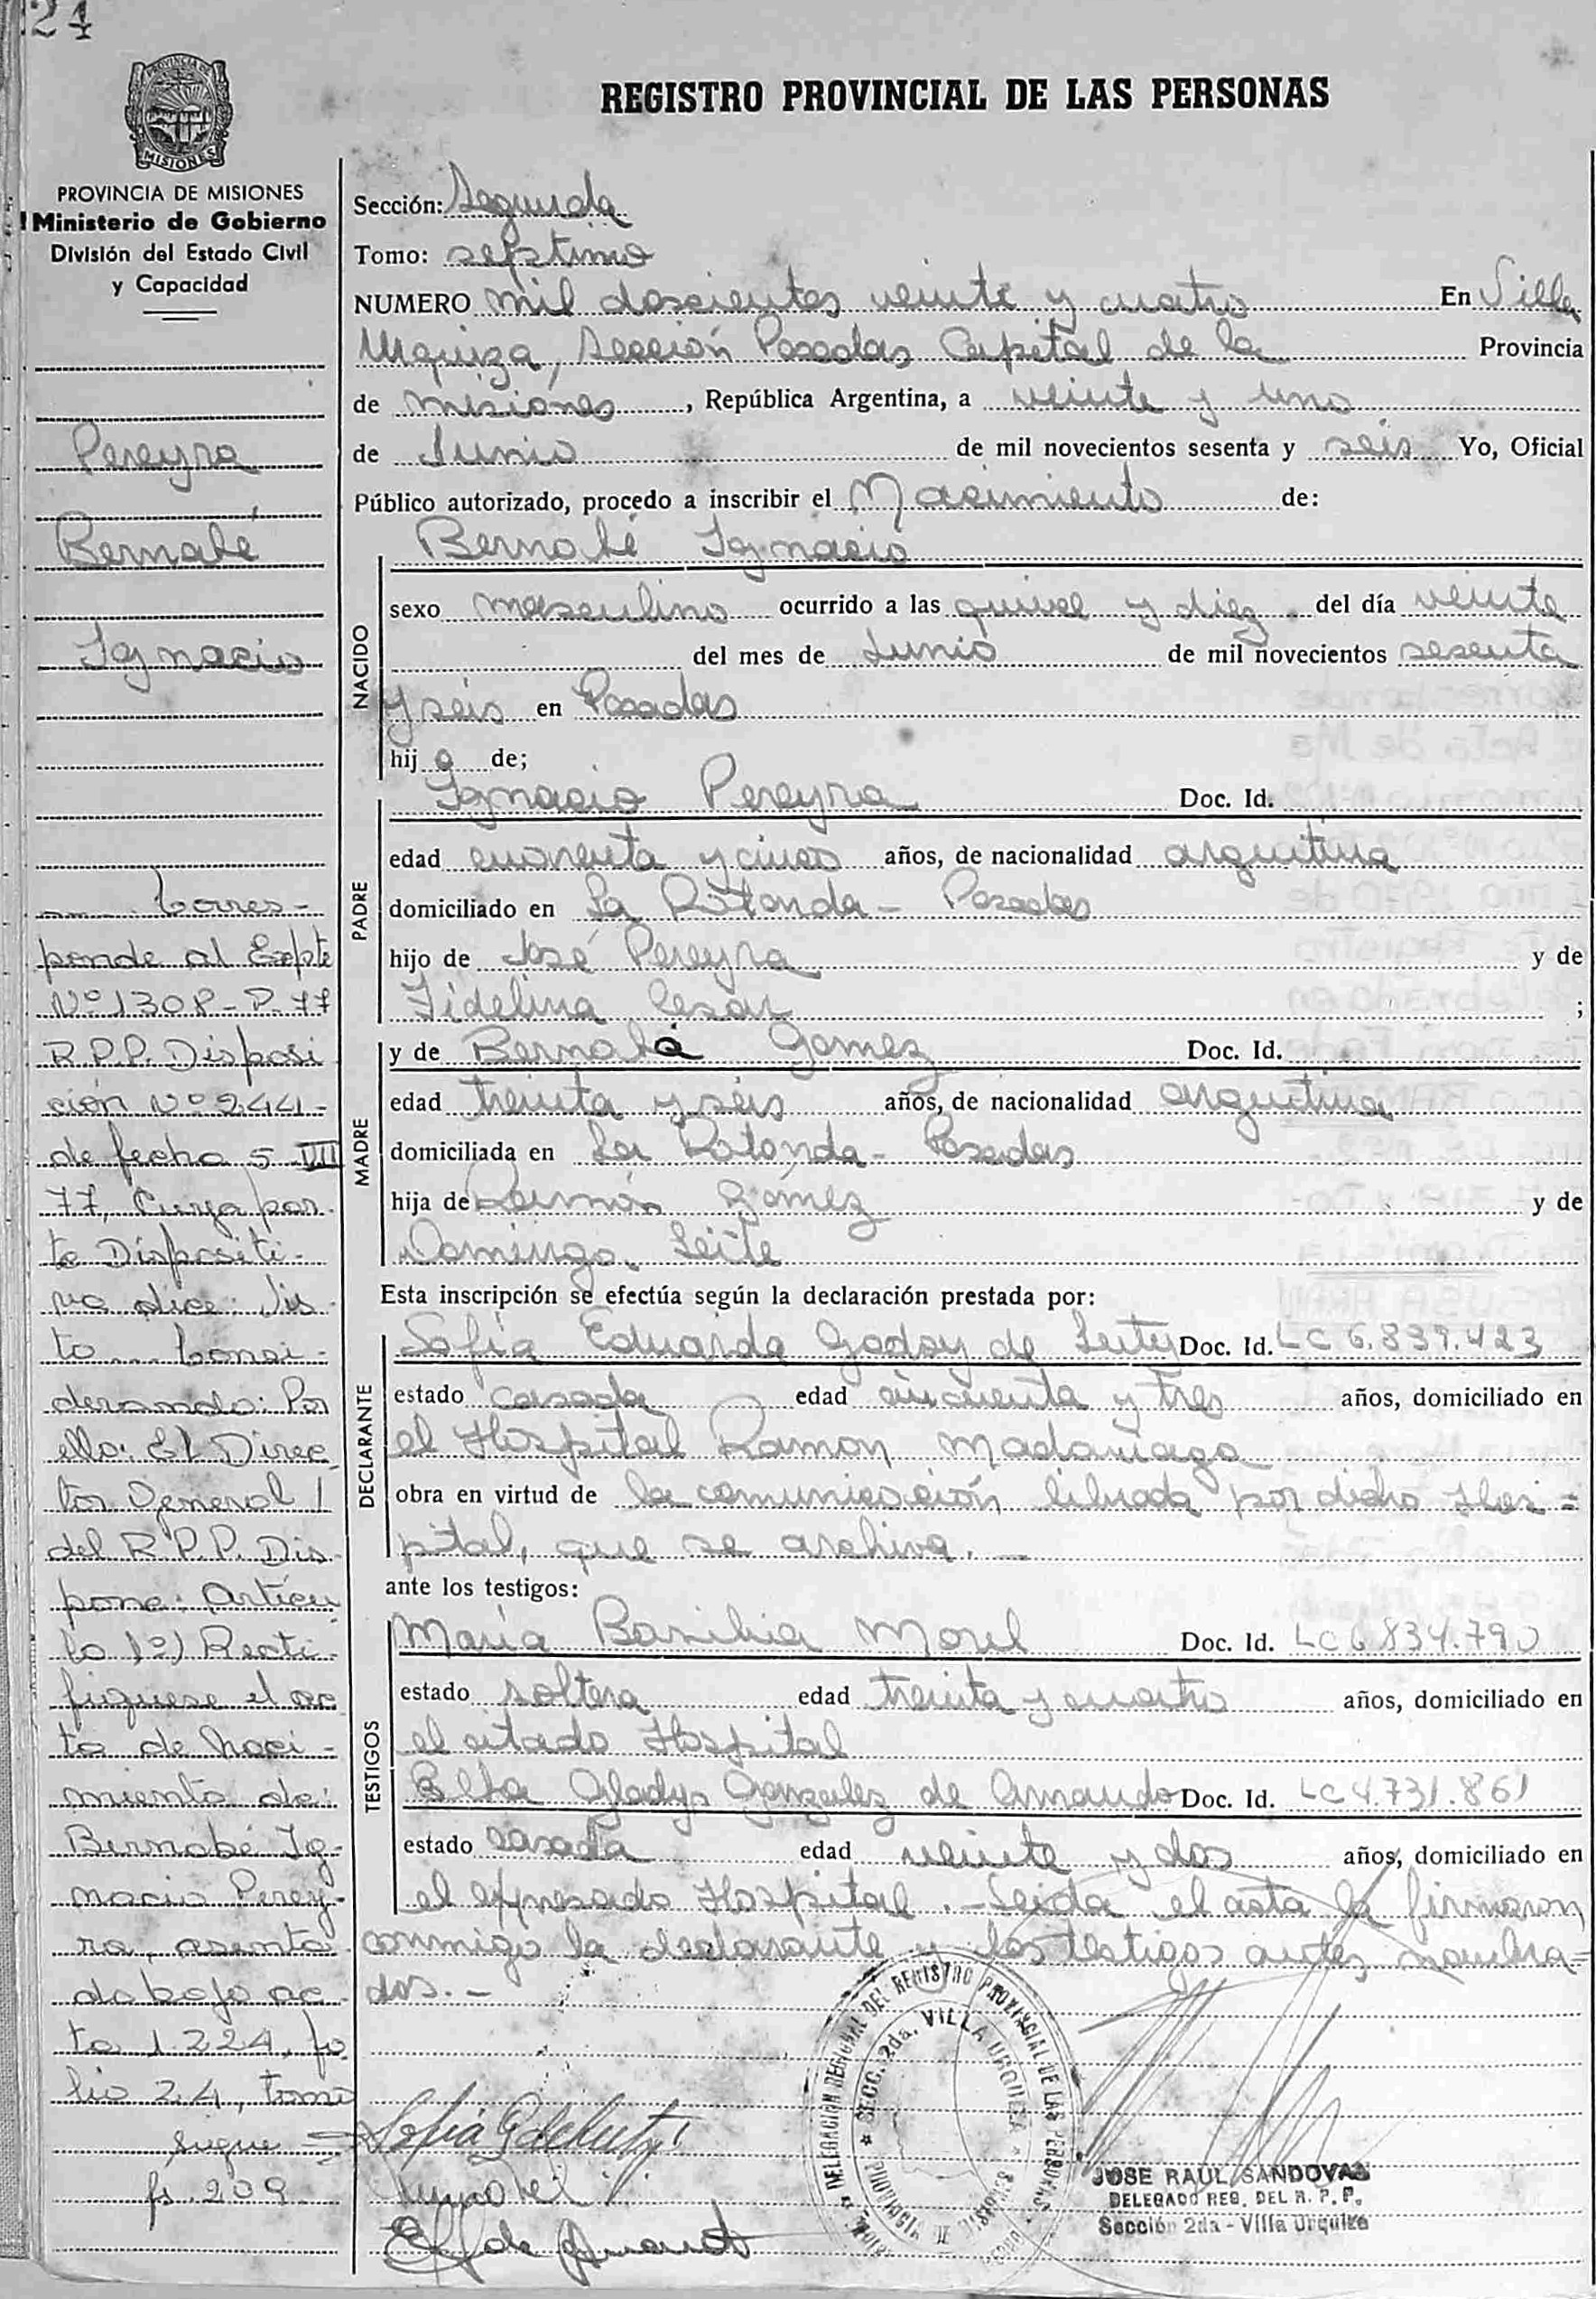 24
PROVINCIA DE
MISIONES
PROVINCIA DE MISIONES
Ministerio de Gobierno
División del Estado Civil
y Capacidad
Pereyra
Bernabé
Ignacio
Corres-
ponde al Expte
Nº 1308-P-77
R.P.P. Disposi
ción Nº 244-
de fecha 5 VIII
77, Cuya par-
te Dispositi-
va dice: Vis-
to... Consi-
derando: Por
ello: El Direc
tor General
del R.P.P. Dis-
pone: Artícu
lo 1º) Recti-
fíquese el ac
ta de Naci-
miento de:
Bernabé Ig-
nacio Perey-
ra, asenta-
da bajo ac-
ta 1224, fo
lio 24, tomo
sigue
fs. 209
REGISTRO PROVINCIAL DE LAS PERSONAS
Sección: Segunda
Tomo: septimo
NUMERO mil doscientos veinte y cuatro En Villa
Urquiza, Sección Posadas Capital de la Provincia
de misiones, República Argentina, a veinte y uno
de Junio de mil novecientos sesenta y seis Yo, Oficial
Público autorizado, procedo a inscribir el Nacimiento de:
Bernabé Ignacio
NACIDO
sexo masculino ocurrido a las quince y diez del día veinte
del mes de Junio de mil novecientos sesenta
y seis en Posadas
hijo de;
PADRE
Ignacio Pereyra Doc. Id.
edad cuarenta y cinco años, de nacionalidad argentina
domiciliado en La Rotonda - Posadas
hijo de José Pereyra y de
Fidelina Cesar ;
MADRE
y de Bernabá Gomez Doc. Id.
edad treinta y seis años, de nacionalidad argentina
domiciliada en La Rotonda - Posadas
hija de Ramón Gómez y de
Dominga Leite
Esta inscripción se efectúa según la declaración prestada por:
DECLARANTE
Sofía Eduarda Godoy de Doc. Id. LC 6.839.423
estado casada edad cincuenta y tres años, domiciliado en
el Hospital Ramon Madariaga
obra en virtud de la comunicación librada por dicho Hos=
pital, que se archiva. -
ante los testigos:
TESTIGOS
María Basilia Morel Doc. Id. LC 6 834.790
estado soltera edad treinta y cuatro años, domiciliado en
el citado Hospital
Elba Gladys Gonzalez de Amando Doc. Id. LC 4.731.861
estado casada edad veinte y dos años, domiciliado en
el expresado Hospital. - Leida el acta la firmaron
conmigo la declarante y los testigos antes nombra=
dos. -
DELEGACION REGIONAL DEL REGISTRO PROVINCIAL DE LAS PERSONAS
SECC. 2da. VILLA URQUIZA
PROVINCIA DE MISIONES
JOSE RAUL SANDOVAL
DELEGADO REG. DEL R. P. P.
Sección 2da - Villa Urquiza